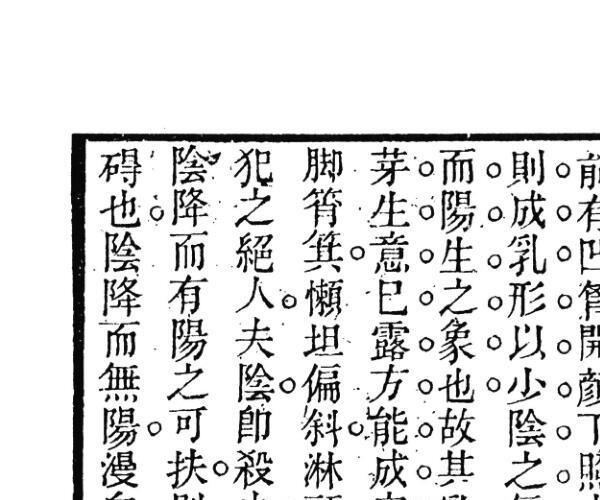 有凹脣開顔了照
則成乳形以少陰之
而陽生之象也故其
芽生意已露方能成
脚筲箕懶坦偏斜淋
犯之絕人夫陰卽殺
陰降而有陽之可扶則
碍也陰降而無陽漫